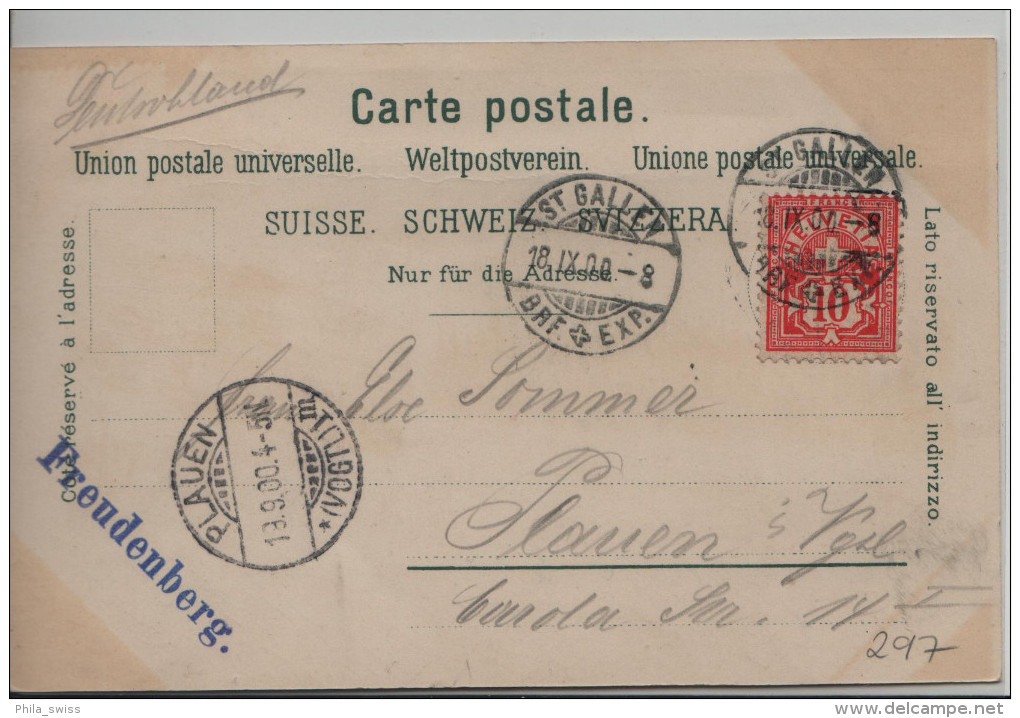 Deutschland
Carte postale.
Union postale universelle. Weltpostverein. Unione postale universale.
SUISSE. SCHWEIZ. SVIZZERA.
Nur für die Adresse.
Côté réservé à l'adresse.
Lato riservato all' indirizzo.
ST GALLEN
18.IX.00.-8
BRF. EXP.
ST. GALLEN
18.IX.00.-8
BRF. EXP.
FRANCO
HELVETIA
10
Else Sommer
Plauen i. Vgtl.
Carola Str. 14 I
PLAUEN
(VOGTL.) 1 m
18.9.00.4-5N
Freudenberg.
297
Phila_swiss
delcampe.net